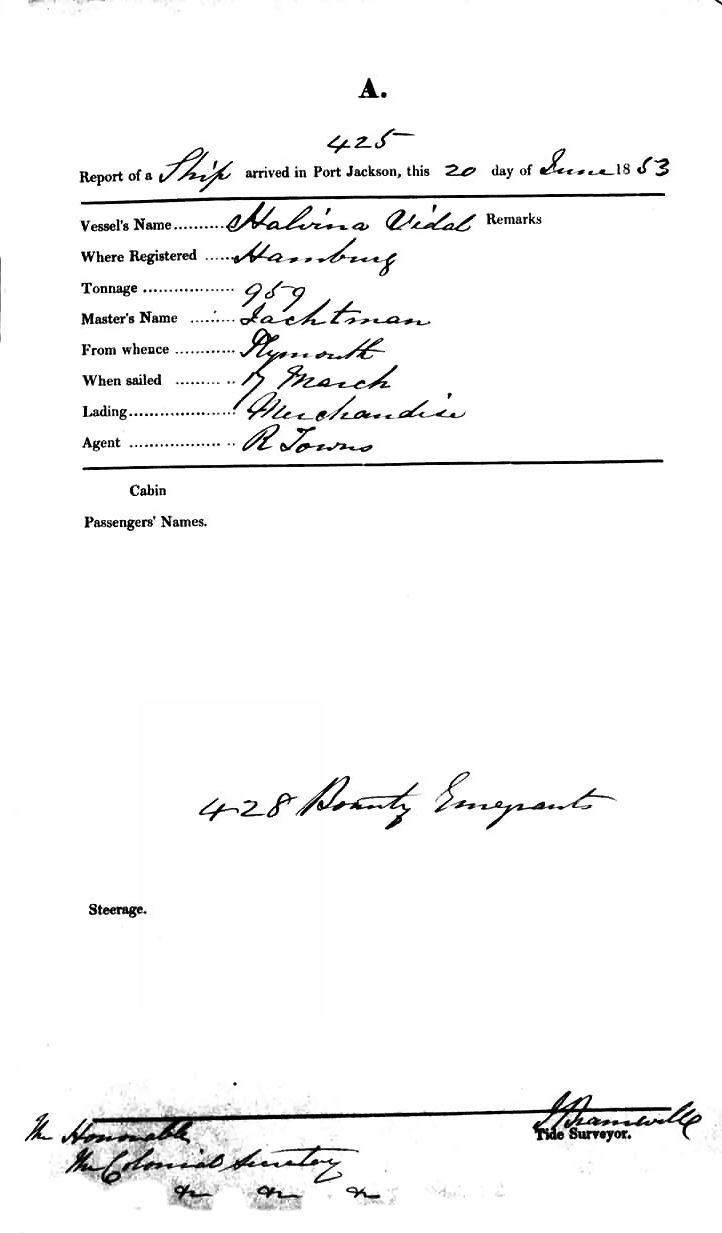 A.
425
Report of a Ship arrived in Port Jackson, this 20 day of June 1853
Vessel's Name.......... Malvina Vidal Remarks
Where Registered ...... Hamburg
Tonnage .................. 959
Master's Name ......... Jachtman
From whence ............ Plymouth
When sailed ........... 17 March
Lading...................... Merchandise
Agent .................... R Towns
Cabin
Passengers' Names.
428 Bounty Emegrants
Steerage.
Tide Surveyor.
The Honourable
The Colonial Secretary
&c &c &c